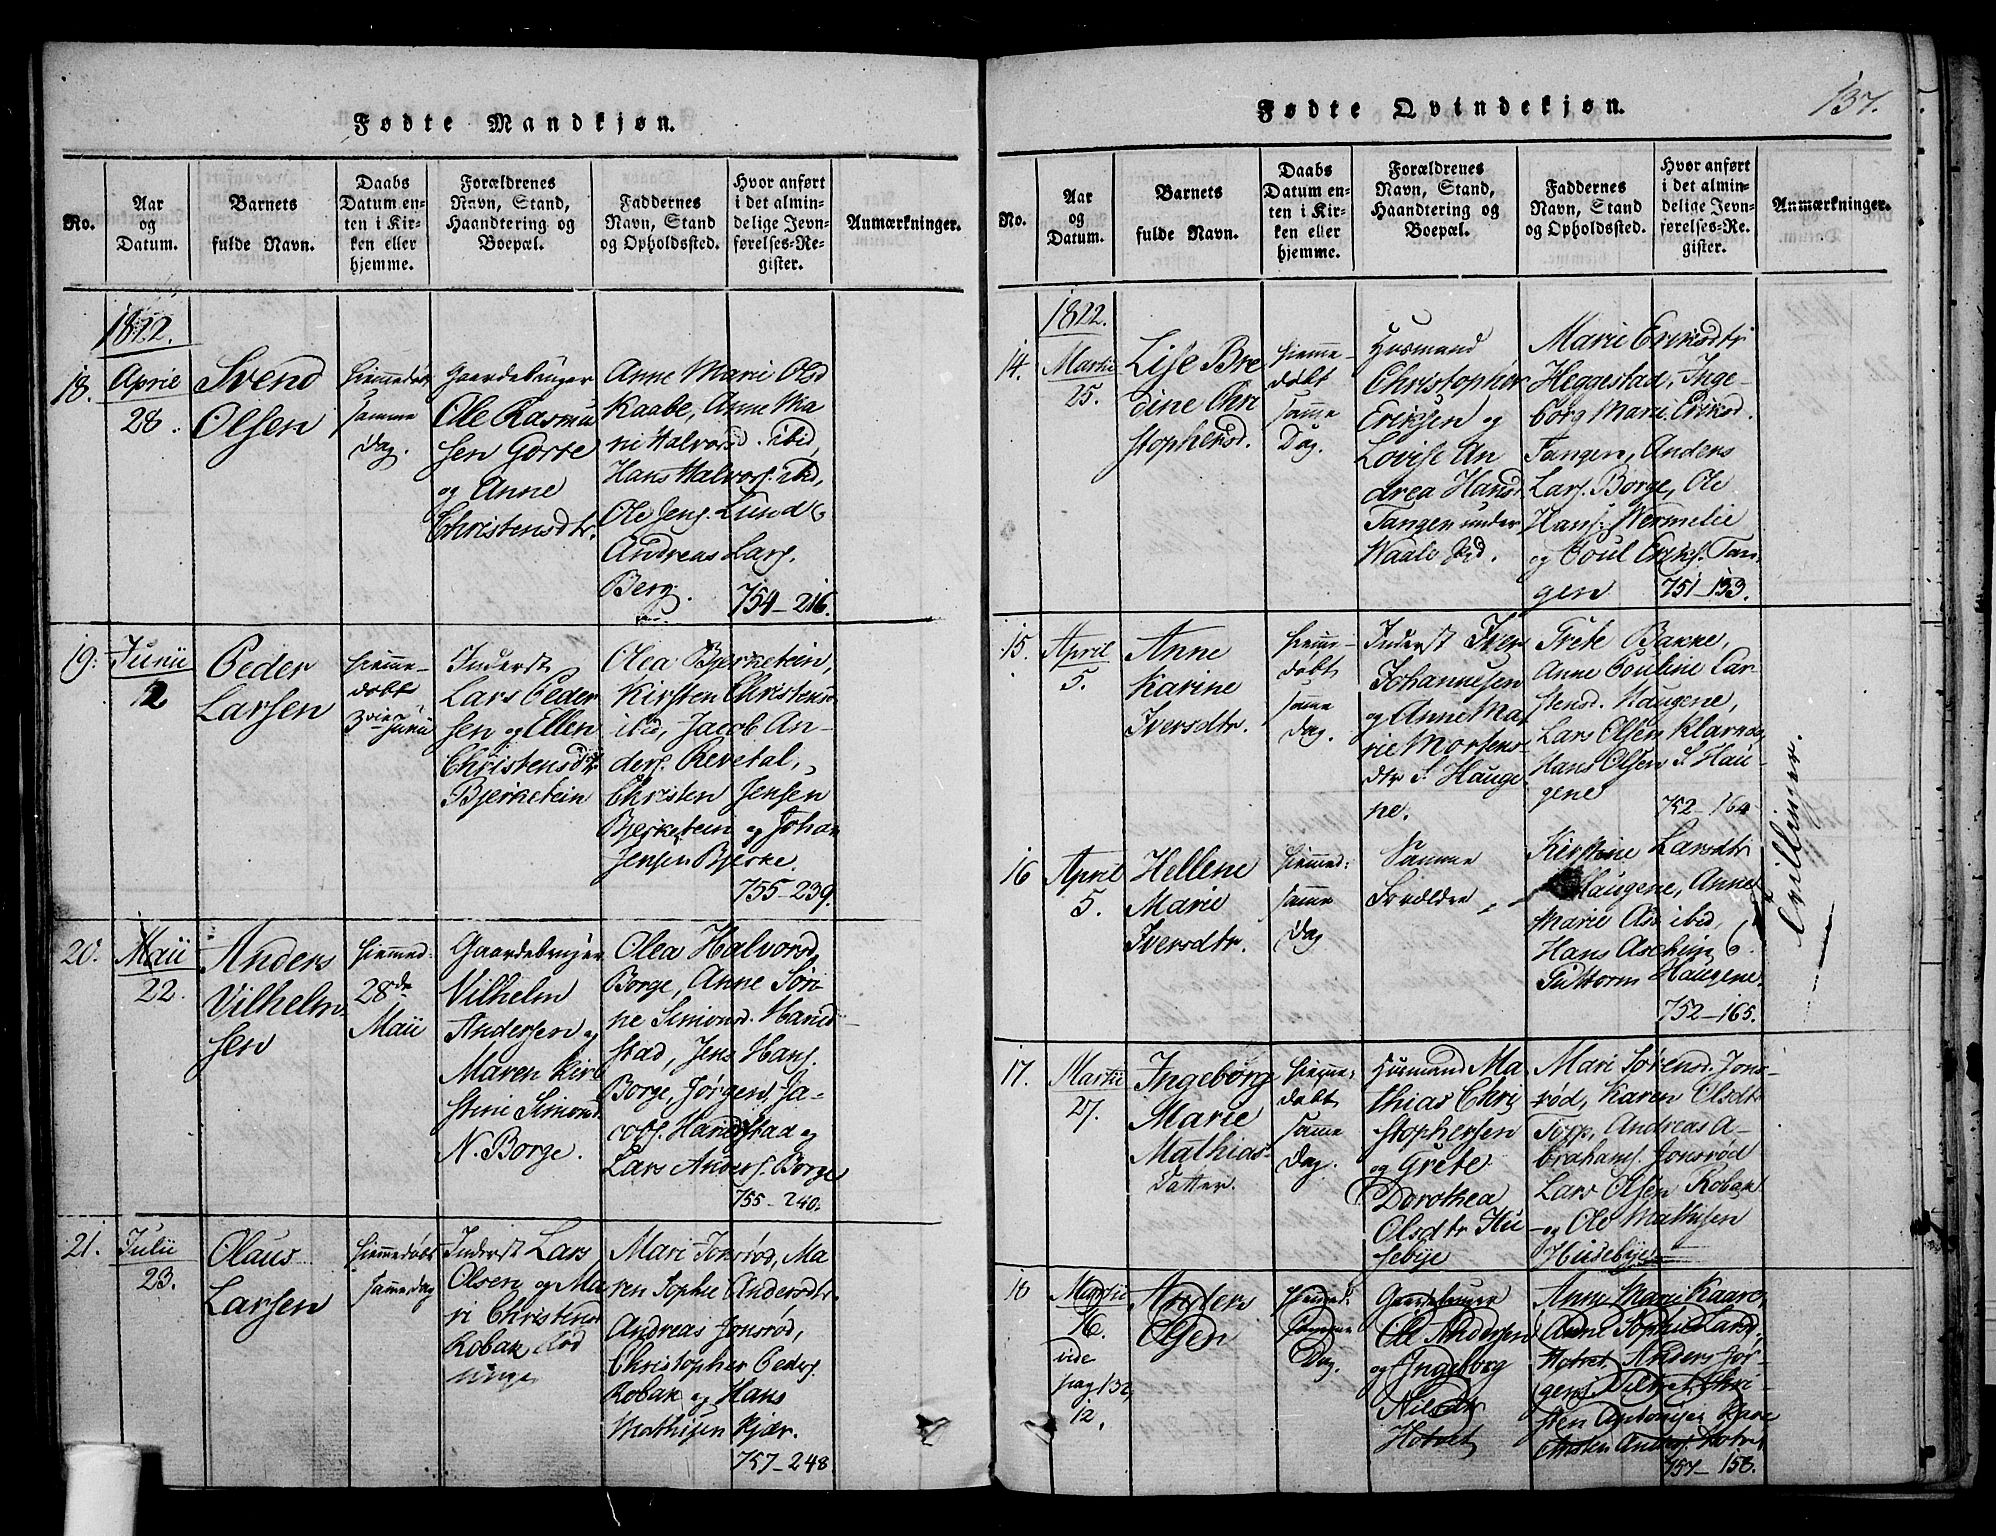 Fødte Mandkjøn.
No.
Aar
og
Datum.
Barnets
fulde Navn.
Daabs
Datum en-
ten i Kir-
ken eller
hjemme.
Forældrenes
Navn, Stand,
Haandtering og
Boepæl.
Faddernes
Navn, Stand
og Opholdssted.
Hvor anført
i det almin-
delige Jevn-
førelses-Re-
gister.
Anmærkninger.
1822.
18.
April
28.
Svend
Olsen
hiemmedøbt
samme
Dag.
Gaardebruger
Ole Rasmu
sen Gorre
og Anne
Christensdtr.
Anne Marie Olsd
Kaabe, Anne Ma
rie Halvorsd. ibid,
Hans Halvors. ibid,
Ole Jens. Lund &
Andreas Lars.
Berg.
754-216.
19.
Junii
2
Peder
Larsen
hiemme-
døbt
3die Junii
Inderst
Lars Peder
sen og Ellen
Christensdtr.
Bjerketein
Olea Bjerketein,
Kirsten Christensd.
ibid, Jacob An-
ders. Revetal,
Christen Jensen
Bjerketein og Johan
Jensen Bjerke.
755-239.
20.
Maii
22.
Anders
Vilhelm
sen
hiemmed.
28de
Maii
Gaardebruger
Vilhelm
Andersen og
Maren Kir
stine Simonsd.
N. Borge.
Olea Halvorsd.
Borge, Anne Søri
ne Simonsd. Harid
stad, Jens Hans.
Borge, Jørgen Ja-
cobs. Haridstad og
Lars Anders. Borge
755-240.
21.
Julii
23.
Olaus
Larsen
hiemmedøbt
samme dag
Inderst Lars
Olsen og Ma
ri Christensd
Robak Rød
unge
Mari Jonsrød, Ma
ren Sophie Andersdtr.
Andreas Jonsrød,
Christopher Peders.
Robak og Hans
Mathisen Kjær.
757-248
Fødte Qvindekjøn.
137.
No.
Aar
og
Datum.
Barnets
fulde Navn.
Daabs
Datum en-
ten i Kir-
ken eller
hjemme.
Forældrenes
Navn, Stand,
Haandtering og
Boepæl.
Faddernes
Navn, Stand
og Opholdssted.
Hvor anført
i det almin-
delige Jevn-
førelses-Re-
gister.
Anmærkninger.
1822.
14.
Martii
25.
Lise Bre
dine Chri
stophersd.
hiemme-
døbt
samme
Dag.
Husmand
Christopher
Eriksen og
Lovise An
drea Hansd
Tangen under
Waale
Marie Eriksdtr
Heggestad, Inge-
borg Marie Eriksd.
Tangen, Anders
Lars. Borge, Ole
Hans. Wermelie
og Poul Eriks. Tan
gen
751-153.
15.
April
5.
Anne
Karine
Iversdtr.
hiemme-
døbt
samme
Dag.
Inderst Iver
Johannesen
og Anne Ma
rie Mortens
dtr S. Hauge
ne.
Grete Bakke,
Anne Pouline Lar
stensd. Haugene,
Lars Olsen Klavnæs
Hans Olsen S. Hau-
gene
752-164
16
April
5.
Hellene
Marie
Iversdtr.
hiemmed:
samme
Dag
Samme
Forældre
Kirstine Larsdtr
Haugene, Anne
Marie Aas ibid,
Hans Aschjem &
Guttorm Haugene.
752-165.
Tvillinger.
17.
Martii
27.
Ingeborg
Marie
Mathias-
Datter.
hiemme-
døbt
samme
Dag.
Husmand Ma
thias Chri
stophersen
og Grete
Dorothea
Olsdtr Hu
sebye
Mari Sørensd. Jons-
rød, Karen Olsdtr
Topp, Andreas A-
brahams. Jonsrød
Lars Olsen Robak
og Ole Mathisen
Husebye
18
Martii
16.
vide
pag 132,
12.
Anders
Olsen
hiemmed:
samme
Dag.
Gaardebruger
Ole Andersen
og Ingeborg
Nilsdtr
Hotvet
Anne Marie Kaare,
Anne Sophie Land
Hotvet, Anders Jør-
gens. Chri-
sten Kare
Anders. Hotvet
757-158.